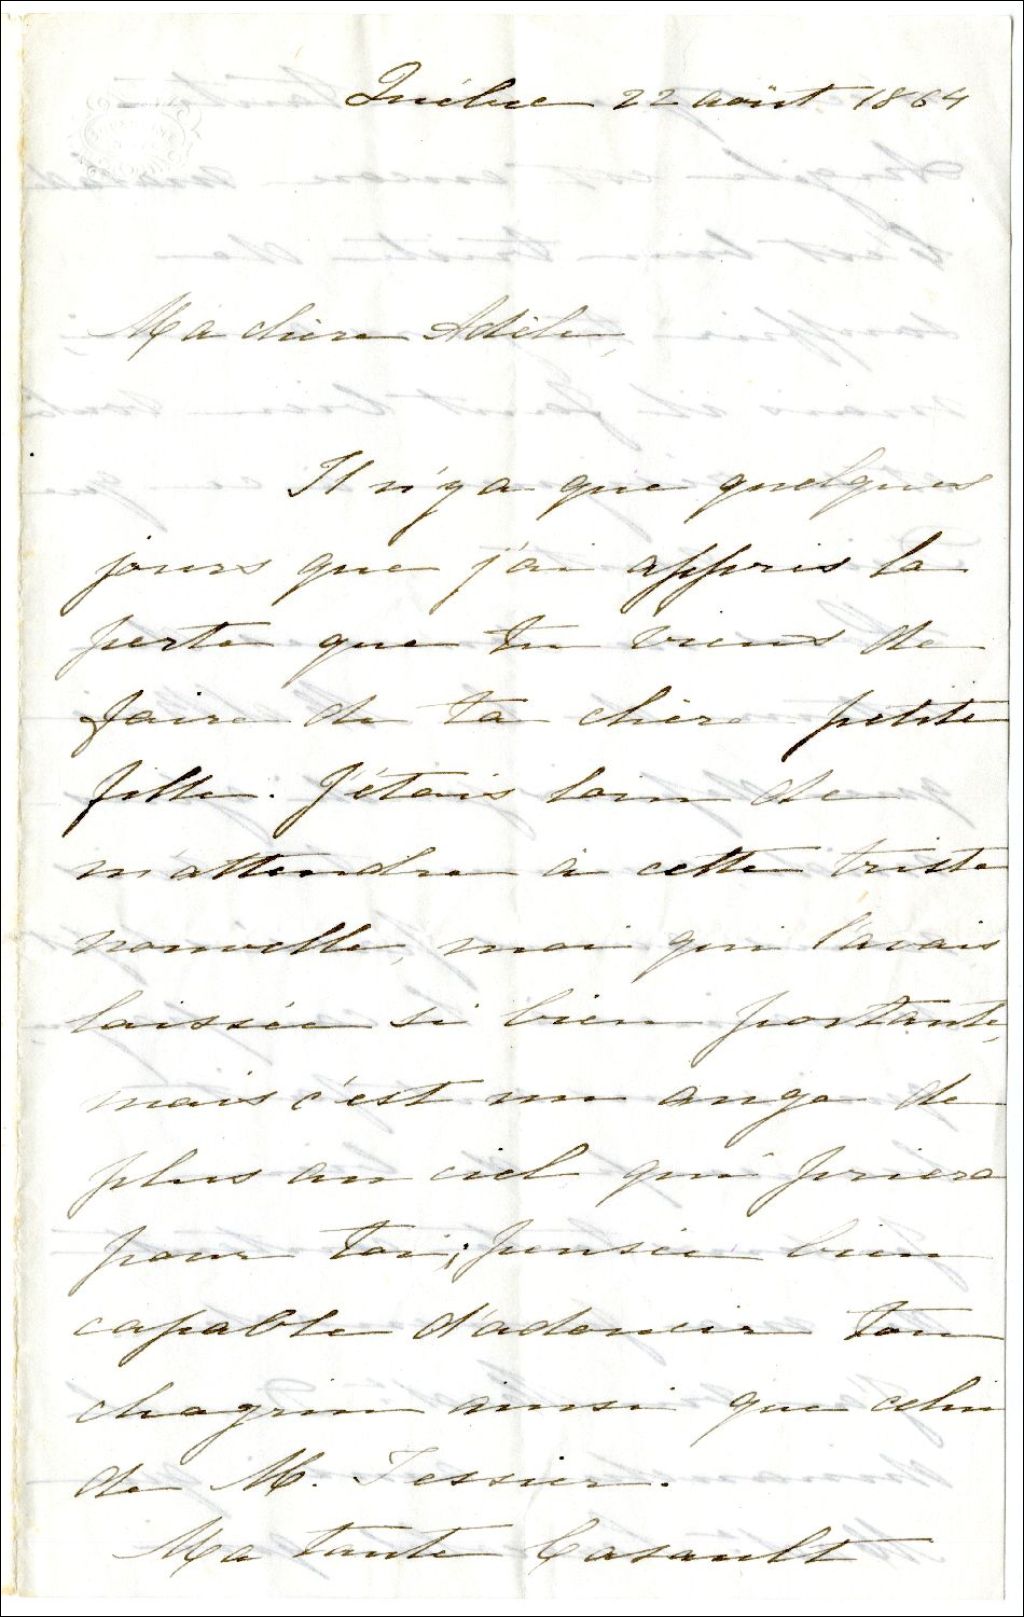 Québec 22 août 1864
Ma chère Adèle,
Il n'y a que quelques
jours que j'ai appris la
perte que tu viens de
faire de ta chère petite
fille. J'étais loin de
m'attendre à cette triste
nouvelle, moi qui l'avais
laissée si bien portante,
mais c'est un ange de
plus au ciel qui priera
pour toi; pensée bien
capable d'adoucir ton
chagrin ainsi que celui
de M. Tessier.
Ma tante Casault